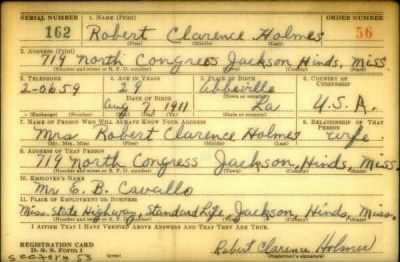 SERIAL NUMBER 1. NAME (Print) ORDER NUMBER
162 Robert Clarence Holmes 56
(First) (Middle) (Last)
2. ADDRESS (Print)
719 North Congress Jackson, Hinds, Miss.
(Number and street or R. F. D. number) (Town) (County) (State)
3. TELEPHONE 4. AGE IN YEARS 5. PLACE OF BIRTH 6. COUNTRY OF CITIZENSHIP
2-0659 29 Abbeville
DATE OF BIRTH
Aug 7, 1911 La U.S.A.
(Exchange) (Number) (Mo.) (Day) (Yr.) (Town or county) (State or country)
7. NAME OF PERSON WHO WILL ALWAYS KNOW YOUR ADDRESS 8. RELATIONSHIP OF THAT PERSON
Mrs Robert Clarence Holmes wife
(Mr., Mrs., Miss) (First) (Middle) (Last)
9. ADDRESS OF THAT PERSON
719 North Congress Jackson, Hinds, Miss.
(Number and street or R. F. D. number) (Town) (County) (State)
10. EMPLOYER'S NAME
Mr E. B. Cavallo
11. PLACE OF EMPLOYMENT OR BUSINESS
Miss. State Highway, Standard Life, Jackson, Hinds, Miss.
(Number and street or R. F. D. number) (Town) (County) (State)
I AFFIRM THAT I HAVE VERIFIED ABOVE ANSWERS AND THAT THEY ARE TRUE.
REGISTRATION CARD
D. S. S. Form 1
Robert Clarence Holmes
(Registrant's signature)